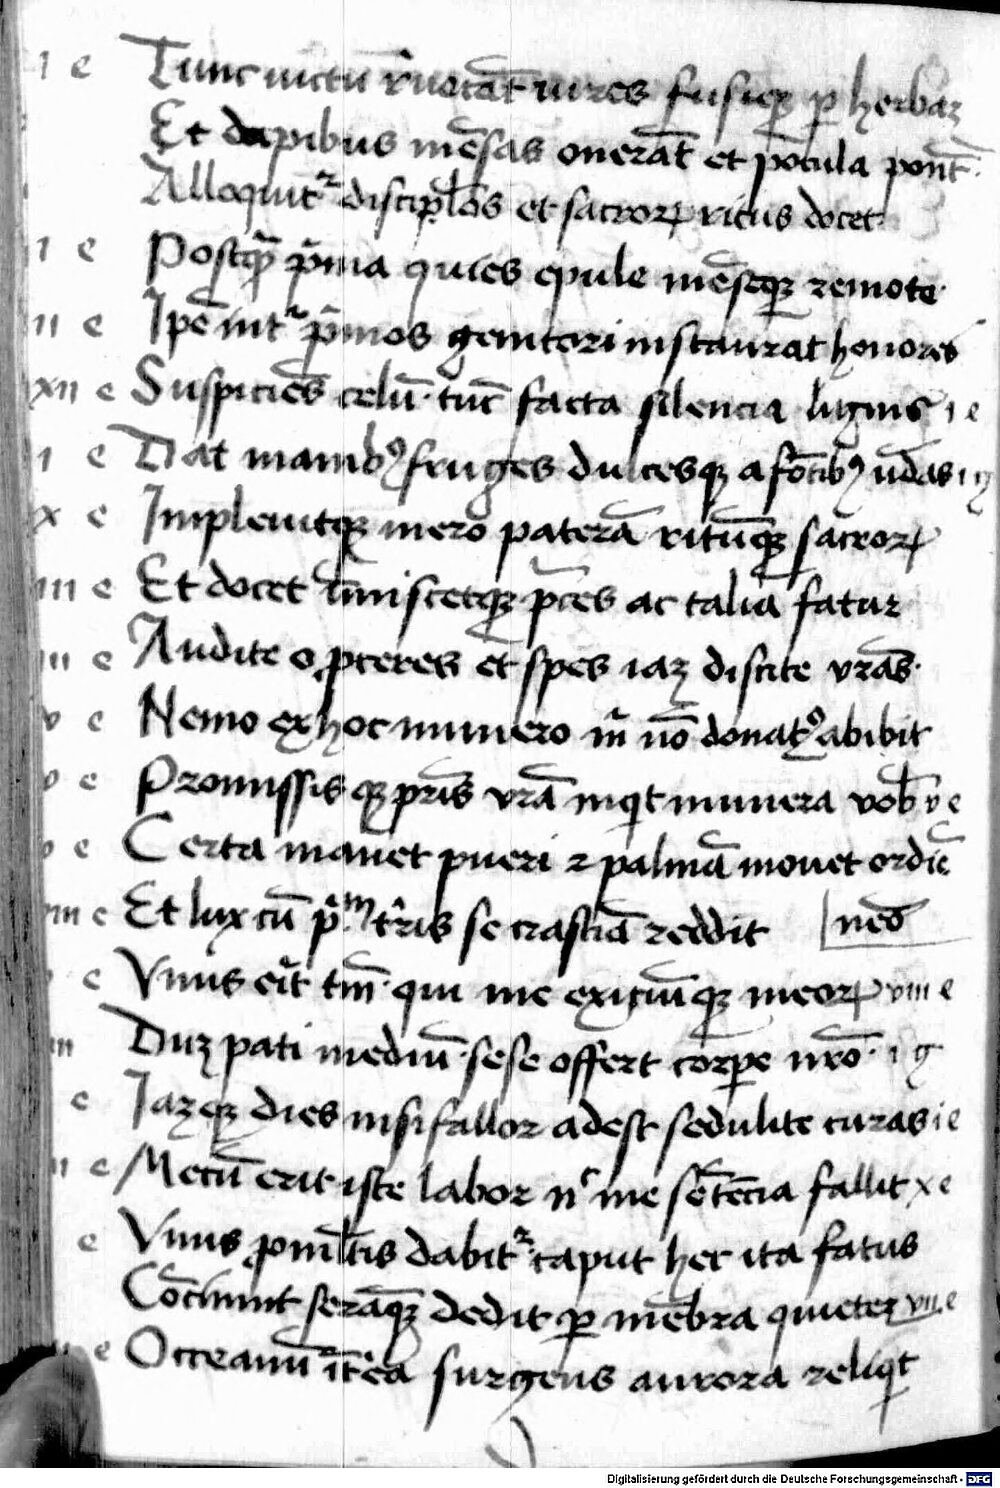 i e Tunc uictu r̄uocāt uires fusiqꝫ p herbaꝫ
Et dapibus mēsas onerāt et pocula ponūt
Alloquit᷑ discipl̄os et sacroꝝ ritus docet
i e Postqꝫ p̄ma quies epule mēseqꝫ remote
ii e Ip̄e int᷑ p̄mos genitori instaurat honores
xii e Suspiciēs celū tūc facta silencia liguis i e
i e Dat manibꝰ fruges dulcesqꝫ a fōtibꝰ ūdas i g
x e Impleuitqꝫ mero paterā ritūqꝫ sacroꝝ
iii e Et docet īmiscetqꝫ p̄ces ac talia fatur
iii e Audite o proceres et spes iaꝫ discite vr̄as
v e Nemo ex hoc numero m̄ nō donatꝰ abibit
v e Promissis qꝫ pr̄is vr̄a inqit munera vob̄ v e
v e Certa manet pueri ⁊ palmā mouet ordīe
viii e Et lux cū p̄m t̄ris se crastīa reddit nēo
e Vnus erit tm̄ qui me exiciūqꝫ meoꝝ viii e
Duꝫ pati mediū sese offert corpe nr̄o i g
e Iaꝫqꝫ dies nisi fallor adest sedulite curas i e
ii e Mecū erit iste labor nͨ me sētēcia fallit x e
e Vnus ꝓ ml̄tis dabit᷑ caput hec ita fatus
Cōticuit serāqꝫ dedit p mēbra quieteꝫ vii e
e Occeanū īt᷑ea surgens aurora reliqit
Digitalisierung gefördert durch die Deutsche Forschungsgemeinschaft - DFG